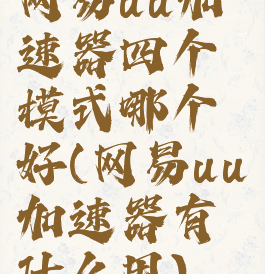 网易uu加
速器四个
模式哪个
好(网易uu
加速器有
什么用)